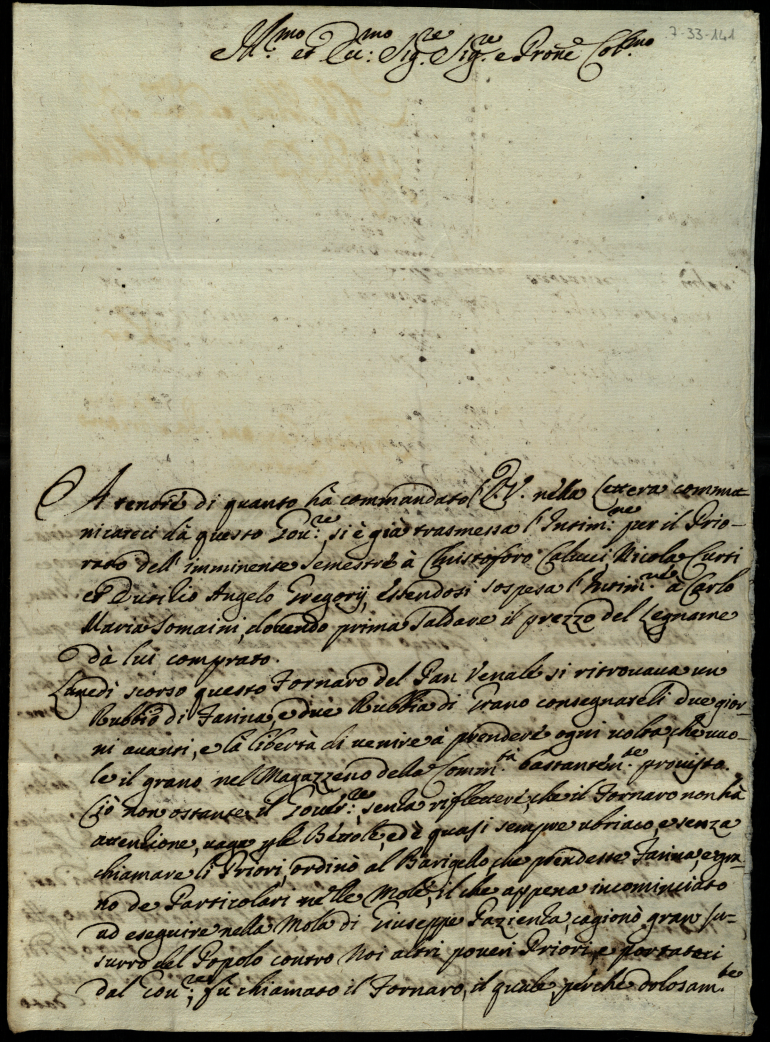 7-33-141
Ill.mo et Ecc:mo Sig.re Sig.re e Prone Col.mo
A tenore di quanto hà commandato l'E.V. nella lettera commu-
nicataci dà questo Gou:re, si è già trasmessa l'Intim:ne per il Prio-
rato dell'imminente Semestre à Christoforo Calucci, Nicola Curti
et Duilio Angelo Gregorij, essendosi sospesa l'Intim:ne à Carlo
Maria Somaini, dovendo prima saldare il prezzo del Legname
dà lui comprato.
Lunedi scorso questo Fornaro del Pan Venale si ritrouaua un
Rubbio di Farina, e due Rubbia di Grano consegnateli due gior-
ni auanti, e la libertà di venire à prendere ogni uolta, che uuo-
le il grano nel Magazzeno della Comm.tà bastantem.te prouista.
Ciò non ostante il Gouer:re, senza riflettere, che il Fornaro non hà
attenzione, uaga p le Bettole, ed è quasi sempre ubriaco, e senza
chiamare li Priori, ordinò al Barigello che prendesse Farina, e gra-
no de Particolari nelle Mole, il che appena incominciato
ad eseguire nella Mola di Giuseppe Pazienza, cagionò gran su-
surro del Popolo contro Noi altri poueri Priori, e portatici
dal Gou:re, fù chiamato il Fornaro, il quale, perche dolosam.te